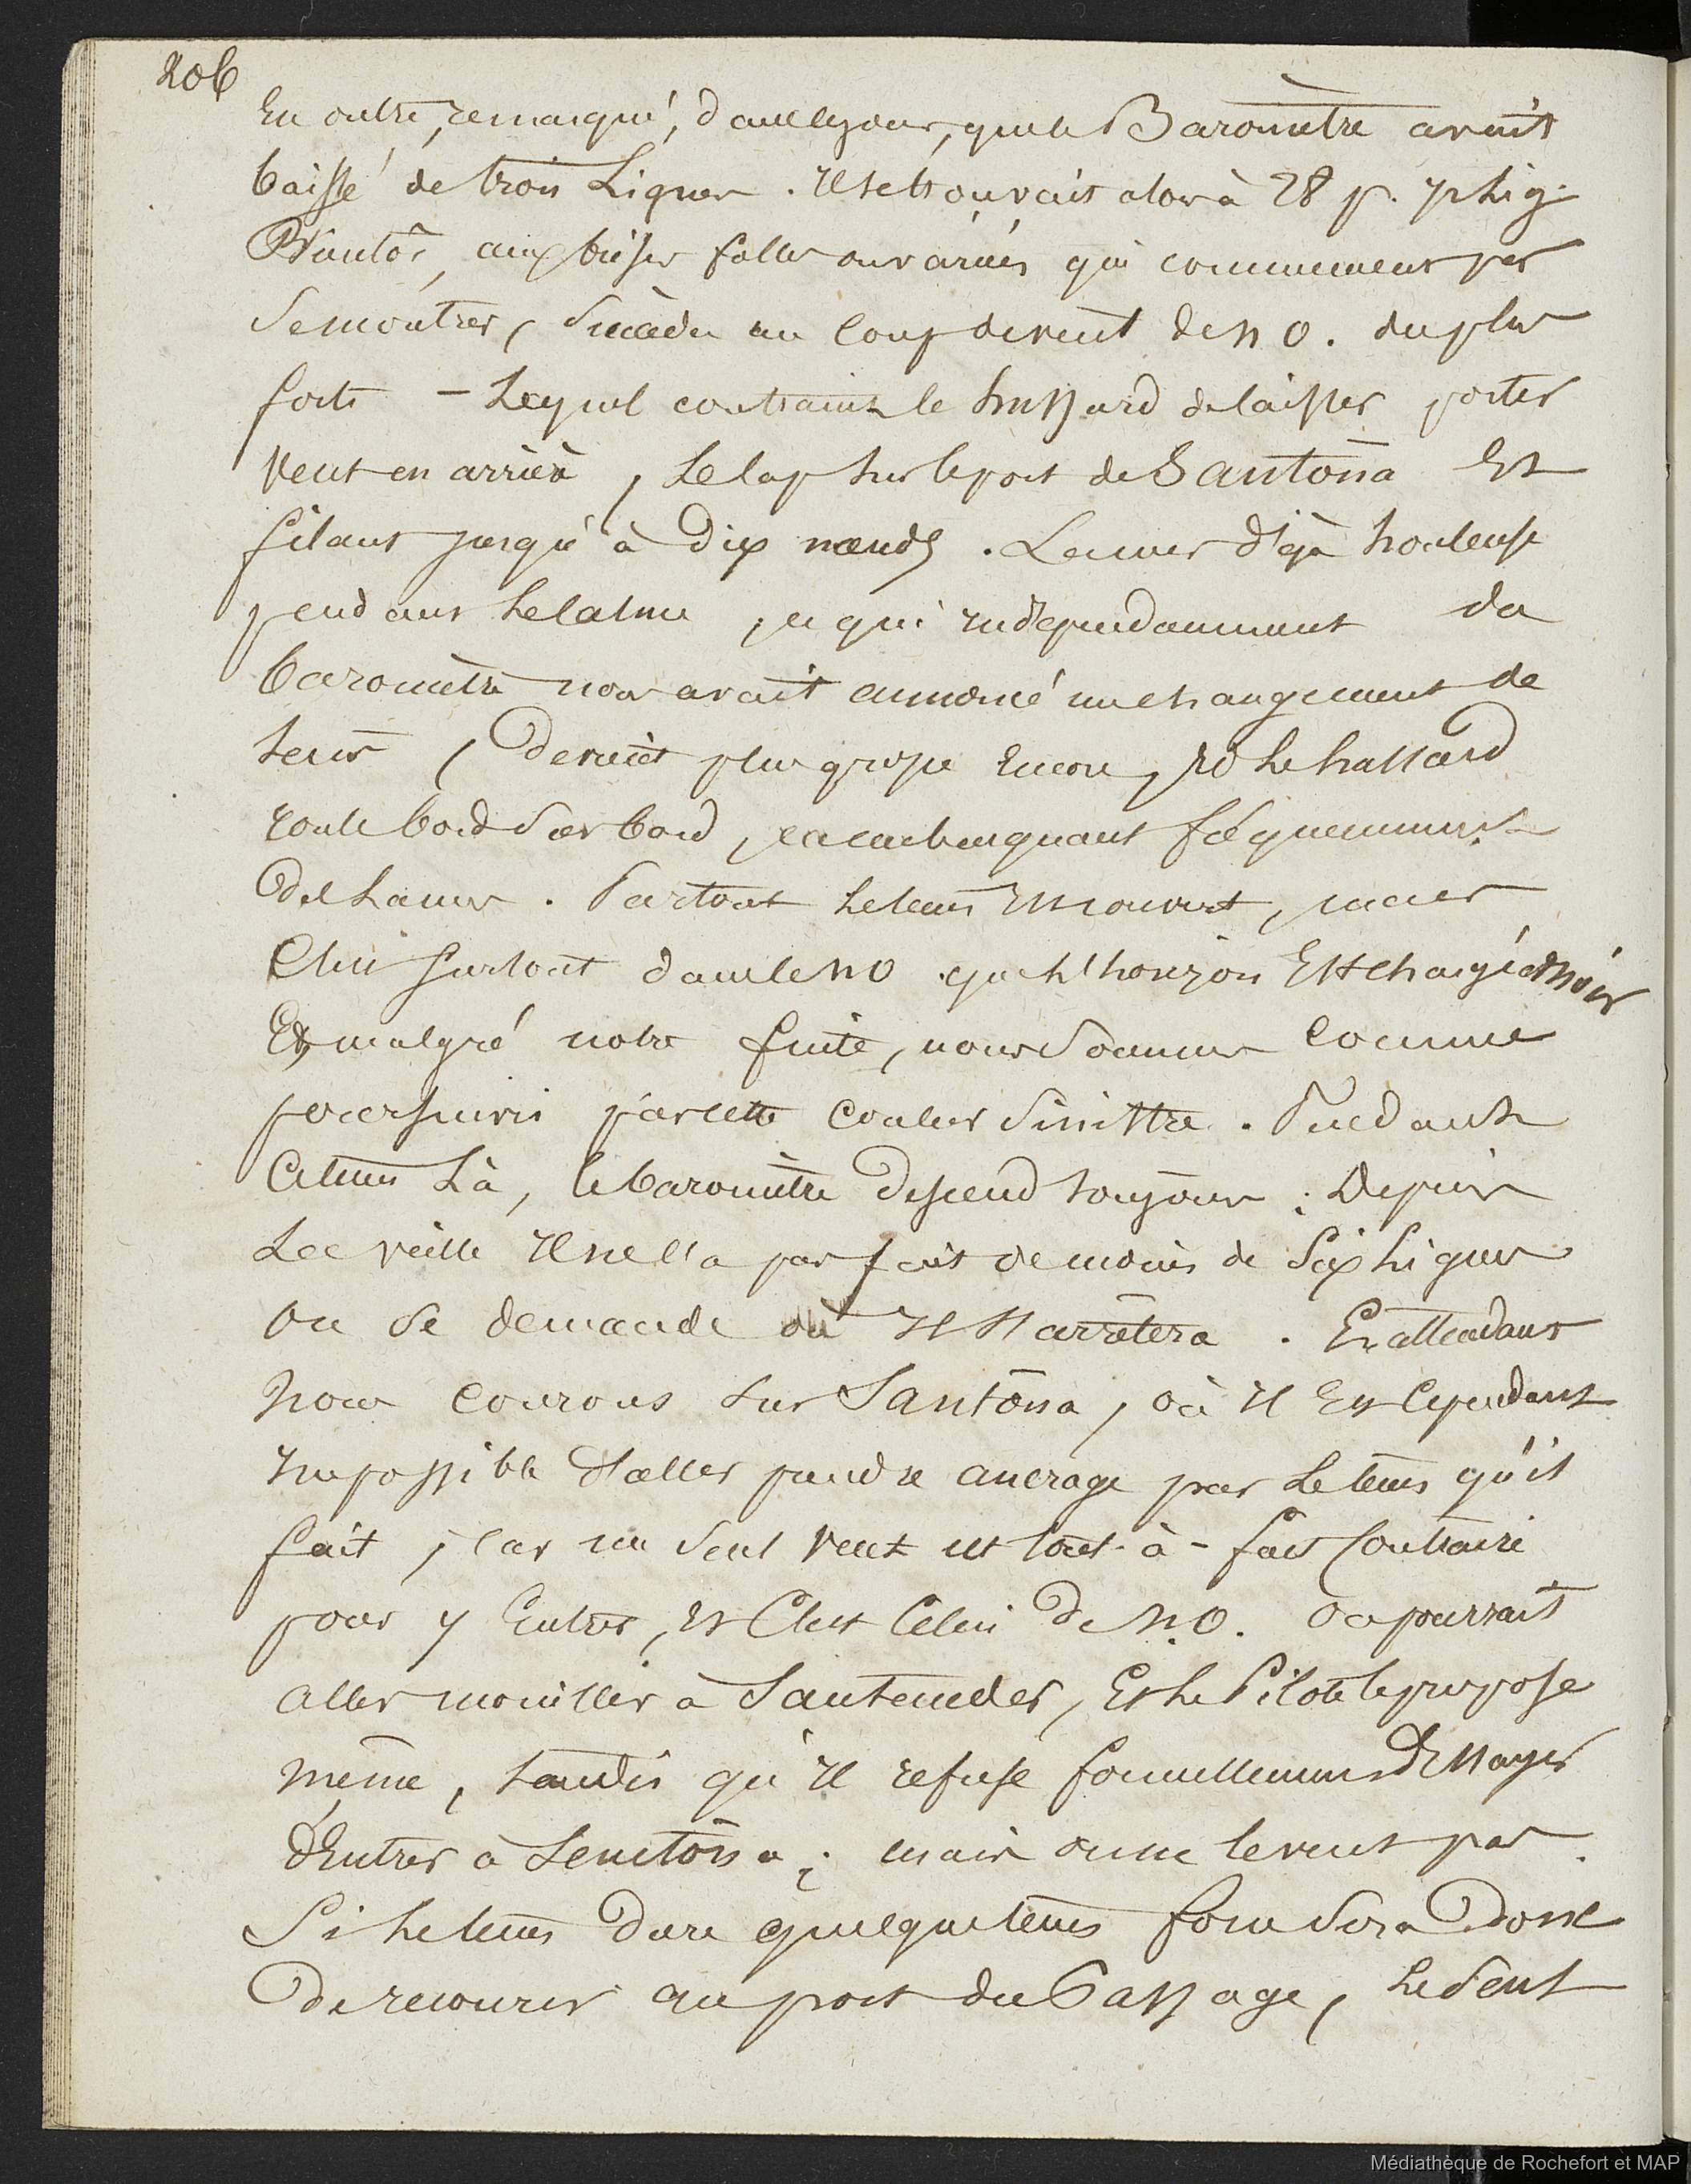 206
En outre, remarqué, dans le jour, que le Baromètre avait
baissé de trois Lignes. Il se trouvait alors à 28 p. 7 Lig.
Bientôt, aux brises folles ou variées qui commencent par
se montrer, succède un coup de vent de NO. du plus
forts – Lequel contraint le hussard de laisser porter
vent en arrière, Le Cap sur le port de Santona Et
filant jusqu'à Dix nœuds. La mer déjà houleuse
pendant le calme, ce qui indépendamment du
baromètre nous avait annoncé un changement de
tems, Devient plus grosse Encore, et le hussard
roule bord sur bord, en embarquant fréquemment
des Lames. Partout le tems est couvert, mais
C'est surtout dans le NO que l'horizon Est chargé de noir
Et malgré notre fuite, nous sommes comme
poursuivis par cette couleur sinistre. Pendant
Ce tems Là, le baromètre descend toujours; Depuis
La veille Il ne l'a pas fait de moins de Six Lignes
On se demande où Il s'arrêtera. En attendant
Nous courons sur Santona, où il Est Cependant
Impossible d'aller prendre ancrage par le tems qu'il
fait, car un seul vent est tout-à-fait Contraire
pour y Entrer, et C'est Celui de N.O. On pourrait
aller mouiller à Santander, Et le Pilote le propose
même, tandis qu'il refuse formellement d'Essayer
d'Entrer à Santona; mais on ne le veut pas.
Si le tems dure quelque tems force sera Donc
De recourir au port du Passage, le seul
Médiathèque de Rochefort et MAP